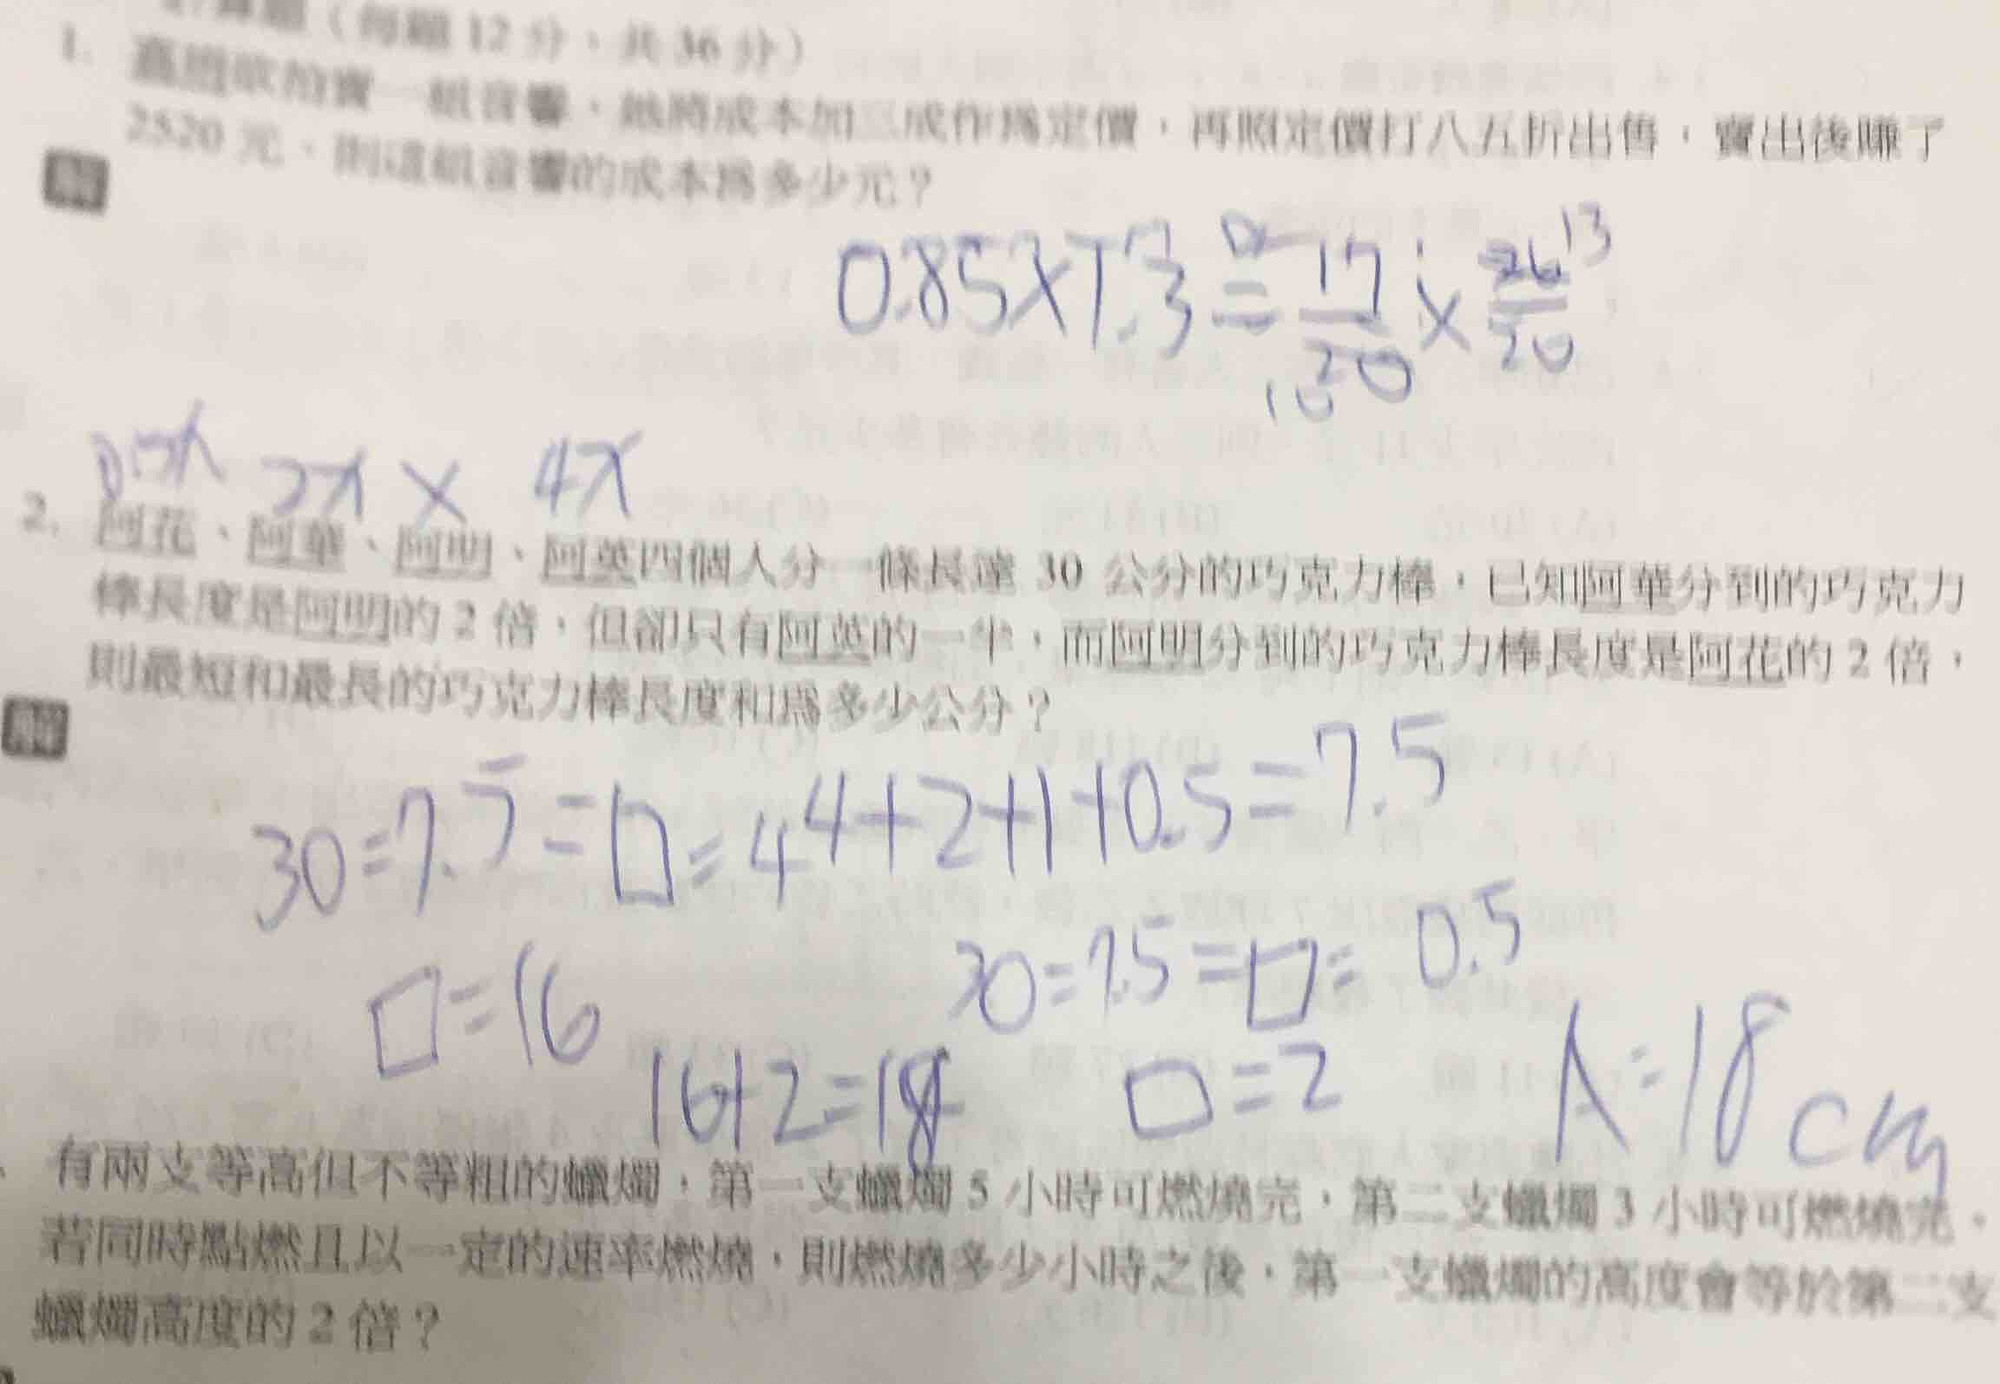 （每題 12 分，共 36 分）
1. 欲拍賣一組音響，她將成本加三成作為定價，再照定價打八五折出售，賣出後賺了
2520 元，則這組音響的成本為多少元？
0.85×1.3 = 17/20 × 26/20 13
10
2x x 4x
2. 阿花、阿華、阿明、阿英四個人分一條長達 30 公分的巧克力棒，已知阿華分到的巧克力
棒長度是阿明的 2 倍，但卻只有阿英的一半，而阿明分到的巧克力棒長度是阿花的 2 倍，
則最短和最長的巧克力棒長度和為多少公分？
解
30=7.5=□=4 4+2+1+0.5=7.5
□=16 30=7.5=□=0.5
16+2=18 □=2 A=18cm
有兩支等高但不等粗的蠟燭，第一支蠟燭 5 小時可燃燒完，第二支蠟燭 3 小時可燃燒完，
若同時點燃且以一定的速率燃燒，則燃燒多少小時之後，第一支蠟燭的高度會等於第二支
蠟燭高度的 2 倍？